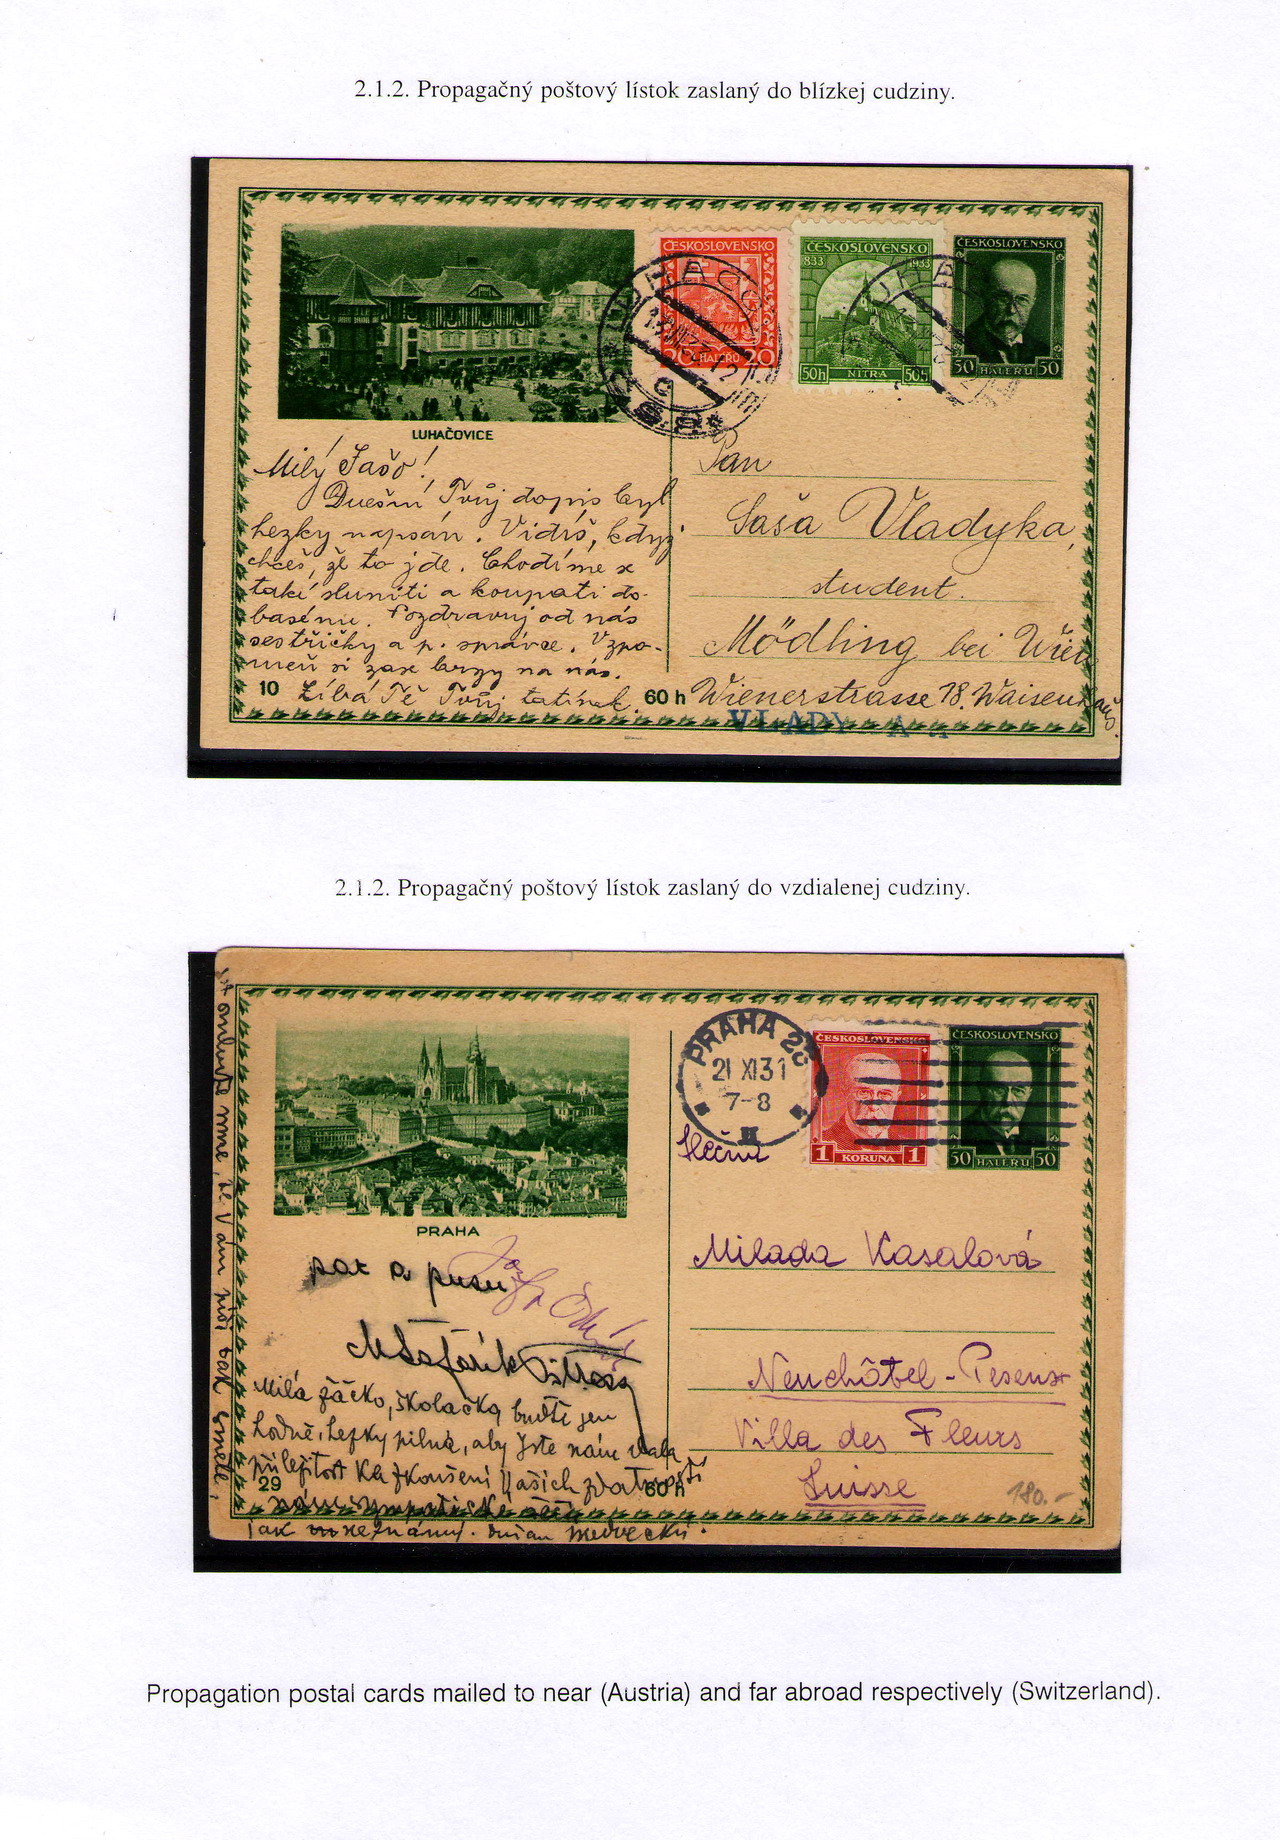 2.1.2. Propagačný poštový lístok zaslaný do blízkej cudziny.
ČESKOSLOVENSKO
20 HALÉŘŮ 20
ČESKOSLOVENSKO
833 1933
50h NITRA 50h
ČESKOSLOVENSKO
50 HALÉŘŮ 50
LUHAČOVICE
Milý Sašo!
Dnešní Tvůj dopis byl
hezky napsán. Vidíš, když
chceš, že to jde. Chodíme se
také sluniti a koupati do
basénu. Pozdravuj od nás
sestřičky a p. správce. Vzpo-
meň si zase brzy na nás.
Líbá Tě Tvůj tatínek.
10
60 h
Pan
Saša Vladyka,
student.
Mödling bei Wien
Wienerstrasse 78. Waisenhaus.
2.1.2. Propagačný poštový lístok zaslaný do vzdialenej cudziny.
PRAHA 25
21 XI 31
7-8
ČESKOSLOVENSKO
1 KORUNA 1
ČESKOSLOVENSKO
50 HALÉŘŮ 50
PRAHA
pac a pusu
MŠafařík
Milá žáčko, školačko, buďte jen
hodně, hezky pilná, aby jste nám dala
příležitost ke zkoušení Vašich
29
60 h
jak neznámý. Dušan Medvecký.
Slečna
Milada Kasalová
Neuchâtel - Peseux
Villa des Fleurs
Suisse
180.-
Propagation postal cards mailed to near (Austria) and far abroad respectively (Switzerland).